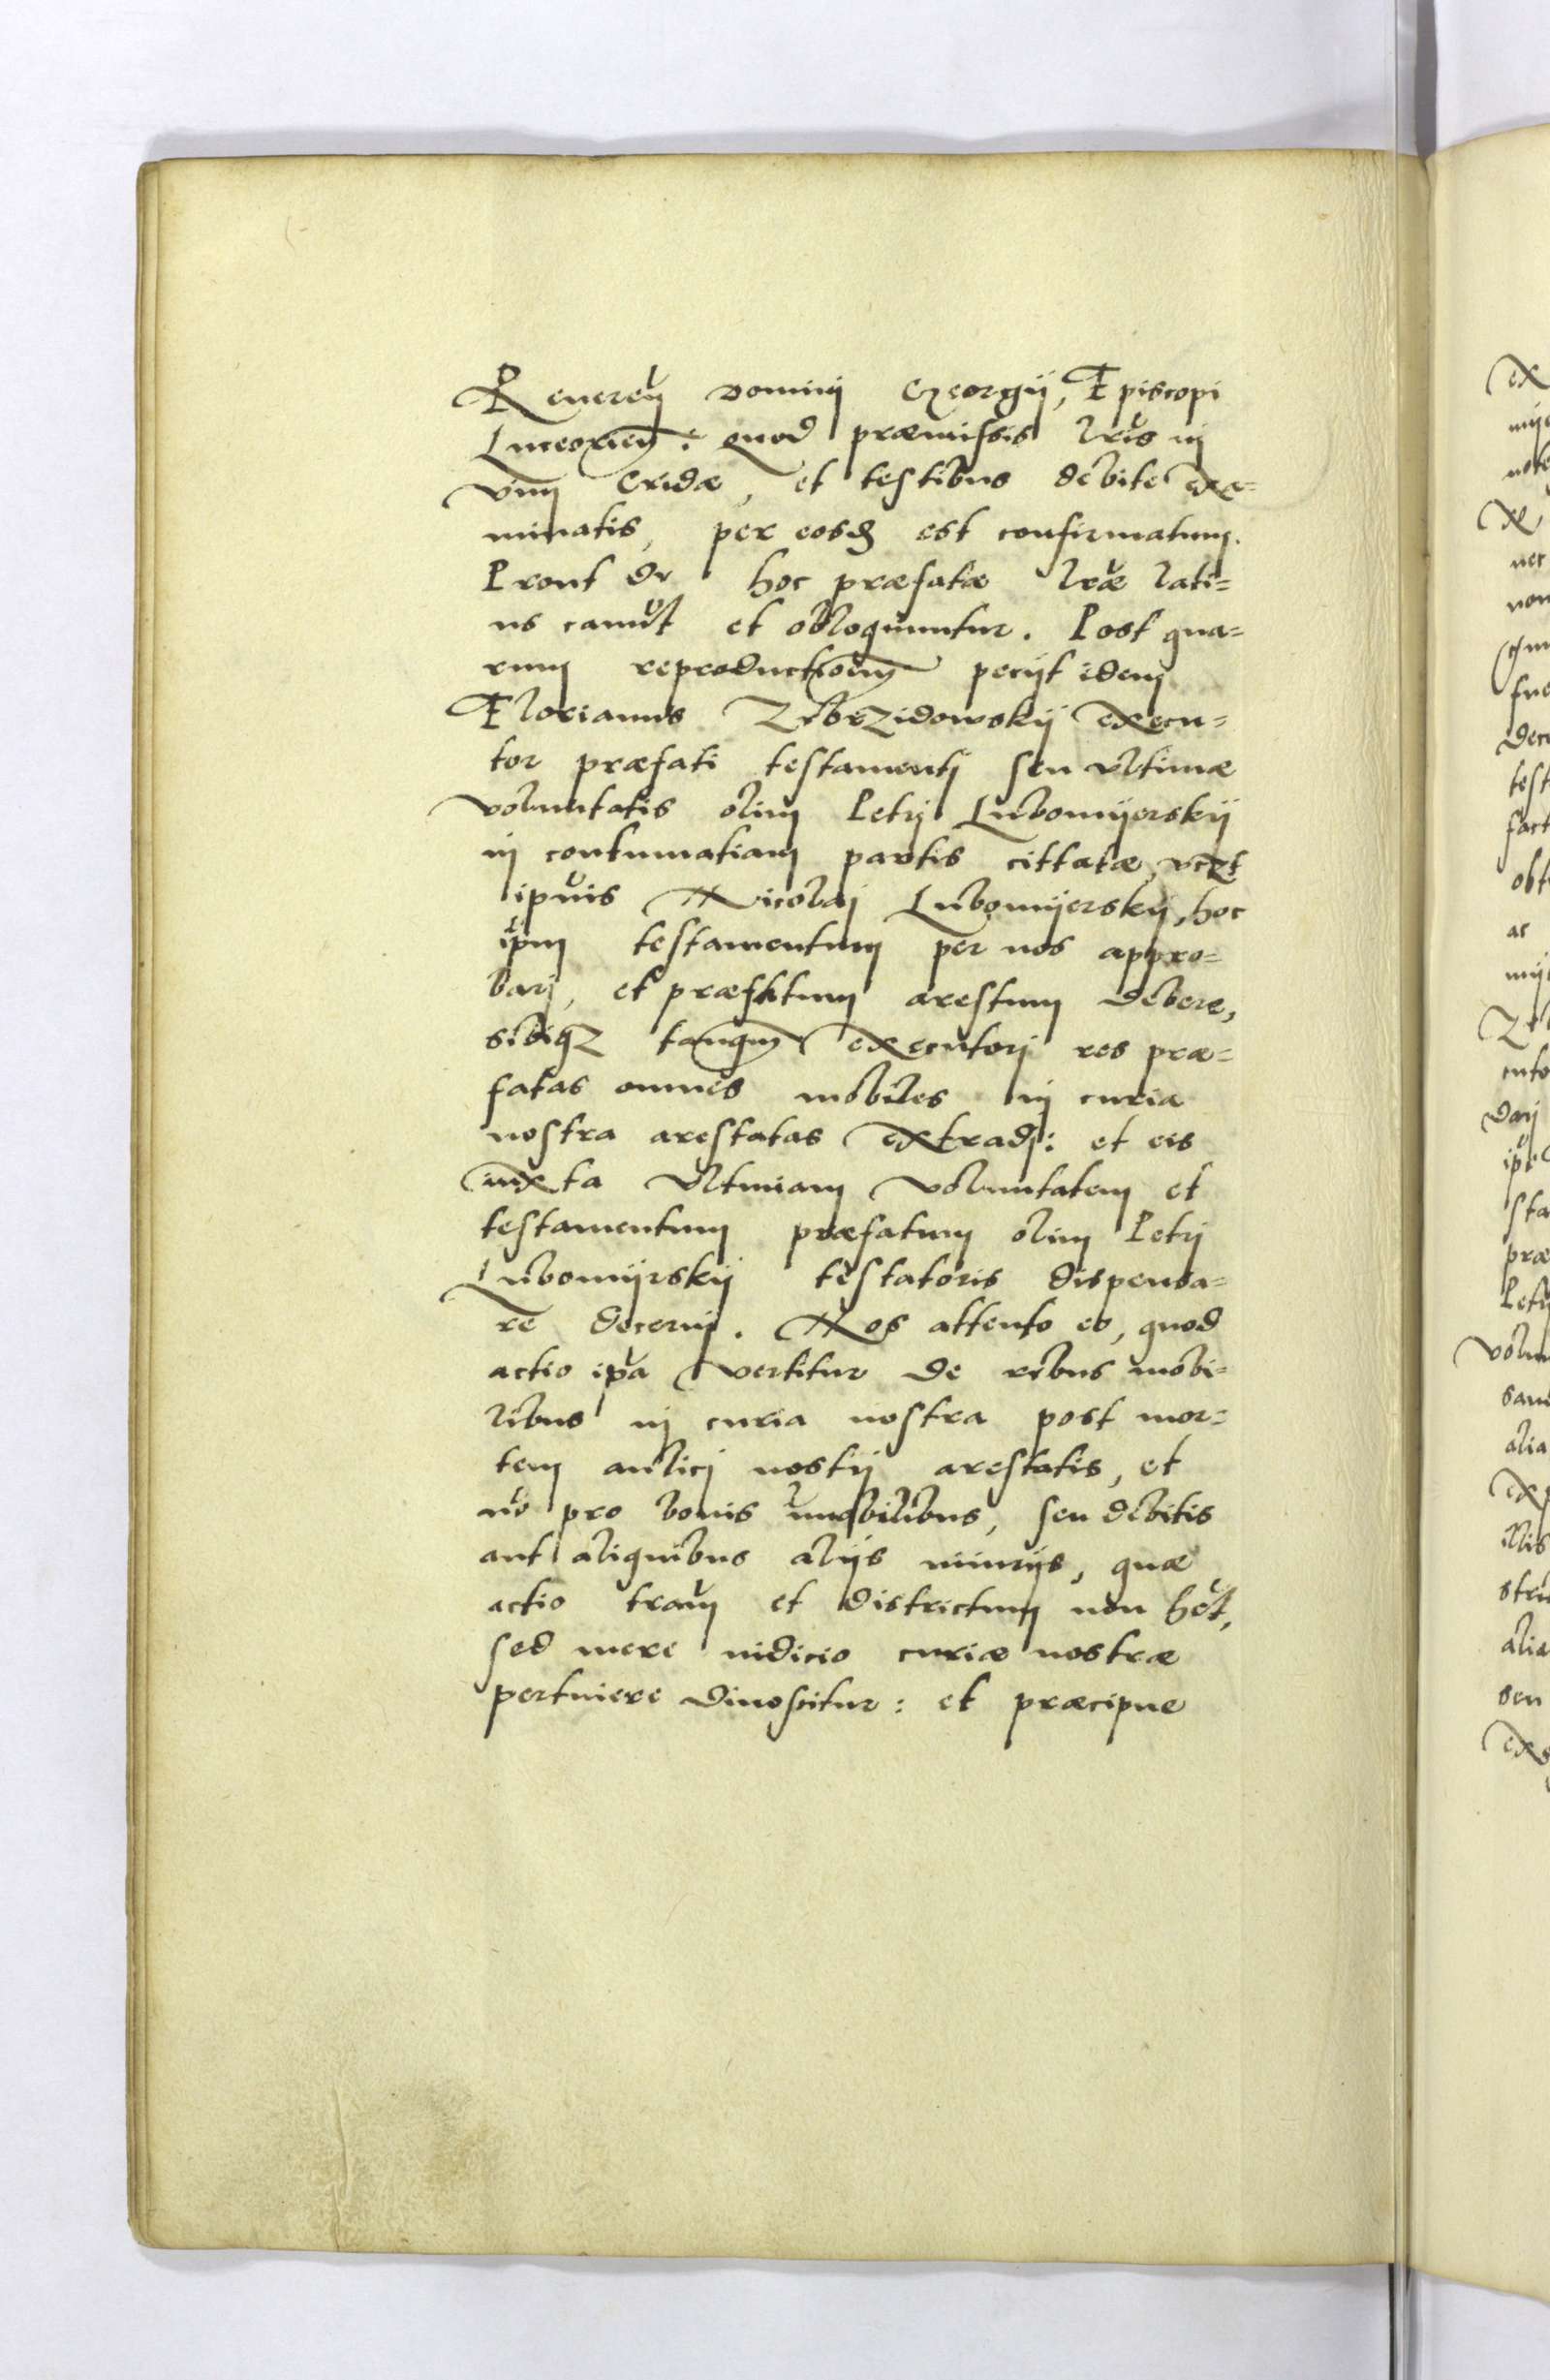 Reueren̄ Dominj Georgij, Episcopi
Luceorien̄: quod præmissis lrīs in
vim cridæ, et testibus debite exa=
minatis, per eosd̄ est confirmatum.
Prout de hoc præfatæ lrāe lati=
us canūt et obloquuntur. Post qua=
rum reproductioēm pecijt idem
Florianus Zebrzidowskij execu=
tor præfati testamentj seu vltimæ
voluntatis olim Petrj Lubomijerskij
in contumatiam partis cittatæ, vczt
ipiūs Nicolaj Lubomijerskij, hoc
ipm̄ testamentum per nos appro=
barj, et præfatum arestum debere,
sibiqz tanqm̄ executorj res præ=
fatas omnes mobiles in curia
nostra arestatas extradj: et eis
iuxta vltimam voluntatem et
testamentum præfatum olim Petrj
Lubomijrskij testatoris dispensa=
re decernj. Nos attento eo, quod
actio ipā vertitur de rebus mobi=
libus in curia nostra post mor=
tem aulicj nostrj arestatis, et
nō pro bonis īmobilibus, seu debitis
aut aliquibus alijs iniurijs, quæ
actio trām et districtum non hēt,
sed mere iudicio curiæ nostræ
pertinere dinoscitur: et præcipue